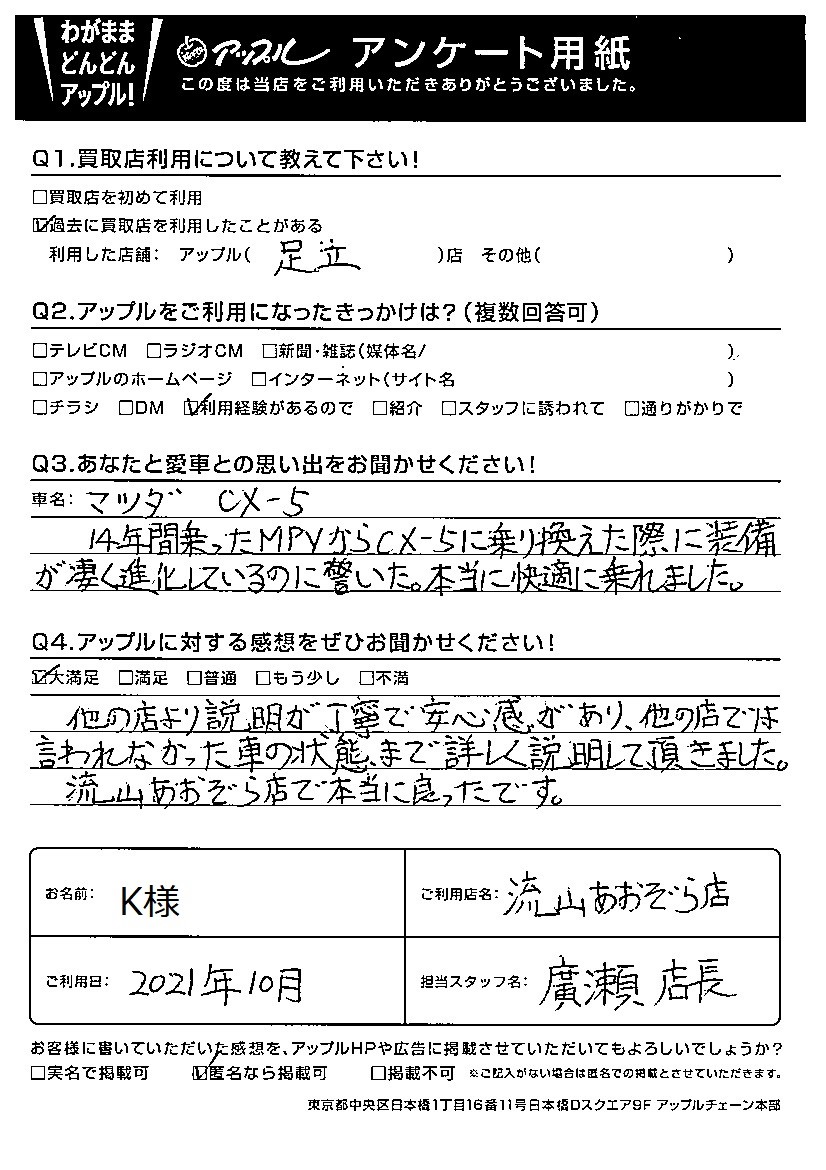 わがまま
どんどん
アップル!
アップル アンケート用紙
この度は当店をご利用いただきありがとうございました。
Q1.買取店利用について教えて下さい!
□買取店を初めて利用
☑過去に買取店を利用したことがある
利用した店舗: アップル( 足立 )店 その他( )
Q2.アップルをご利用になったきっかけは?(複数回答可)
□テレビCM □ラジオCM □新聞・雑誌(媒体名/ )
□アップルのホームページ □インターネット(サイト名 )
□チラシ □DM ☑利用経験があるので □紹介 □スタッフに誘われて □通りがかりで
Q3.あなたと愛車との思い出をお聞かせください!
車名: マツダ CX-5
14年間乗ったMPVからCX-5に乗り換えた際に装備
が凄く進化しているのに驚いた。本当に快適に乗れました。
Q4.アップルに対する感想をぜひお聞かせください!
☑大満足 □満足 □普通 □もう少し □不満
他の店より説明が丁寧で安心感があり、他の店では
言われなかった車の状態まで詳しく説明して頂きました。
流山あおぞら店で本当に良ったです。
お名前: K様
ご利用店名: 流山あおぞら店
ご利用日: 2021年10月
担当スタッフ名: 廣瀬 店長
お客様に書いていただいた感想を、アップルHPや広告に掲載させていただいてもよろしいでしょうか?
□実名で掲載可 ☑匿名なら掲載可 □掲載不可 ※ご記入がない場合は匿名での掲載とさせていただきます。
東京都中央区日本橋1丁目16番11号日本橋Dスクエア9F アップルチェーン本部